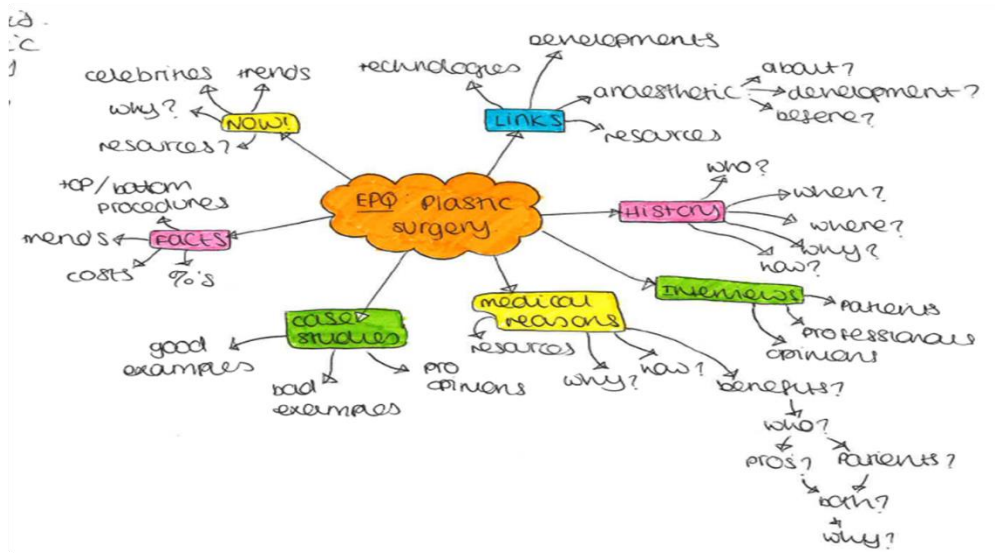 EPQ: Plastic
surgery
NOW!
celebrities
trends
why?
resources?
LINKS
technologies
developments
anaesthetic
about?
development?
before?
resources
HISTORY
who?
when?
where?
why?
how?
Interviews
patients
professionals
opinions
medical
reasons
resources
why?
how?
benefits?
who?
pros?
Patients?
both?
why?
case
studies
good
examples
bad
examples
pro
opinions
FACTS
top/bottom
procedures
trends
costs
%'s